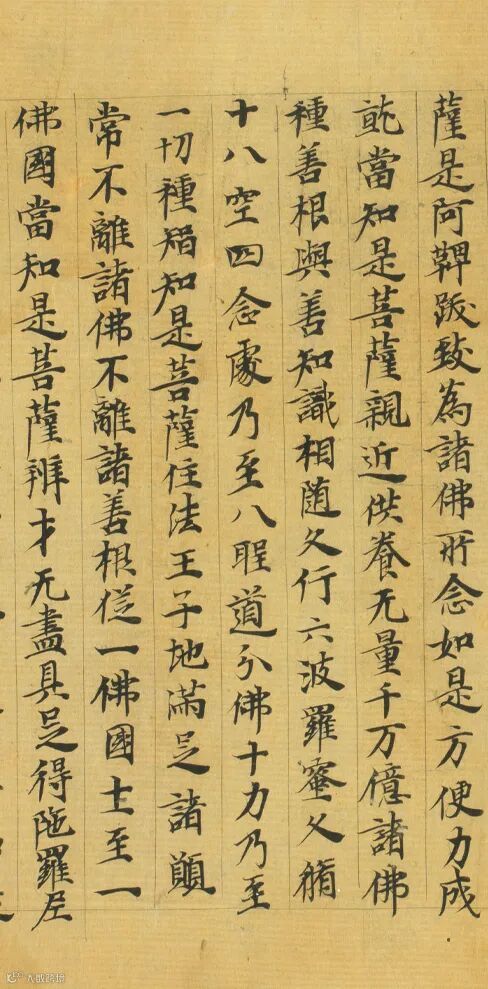 薩是阿鞞跋致為諸佛所念如是方便力成
就當知是菩薩親近供養无量千万億諸佛
種善根與善知識相随久行六波羅蜜久脩
十八空四念處乃至八聖道分佛十力乃至
一切種智知是菩薩住法王子地滿足諸願
常不離諸佛不離諸善根從一佛國土至一
佛國當知是菩薩辨才无盡具足得陁羅尼